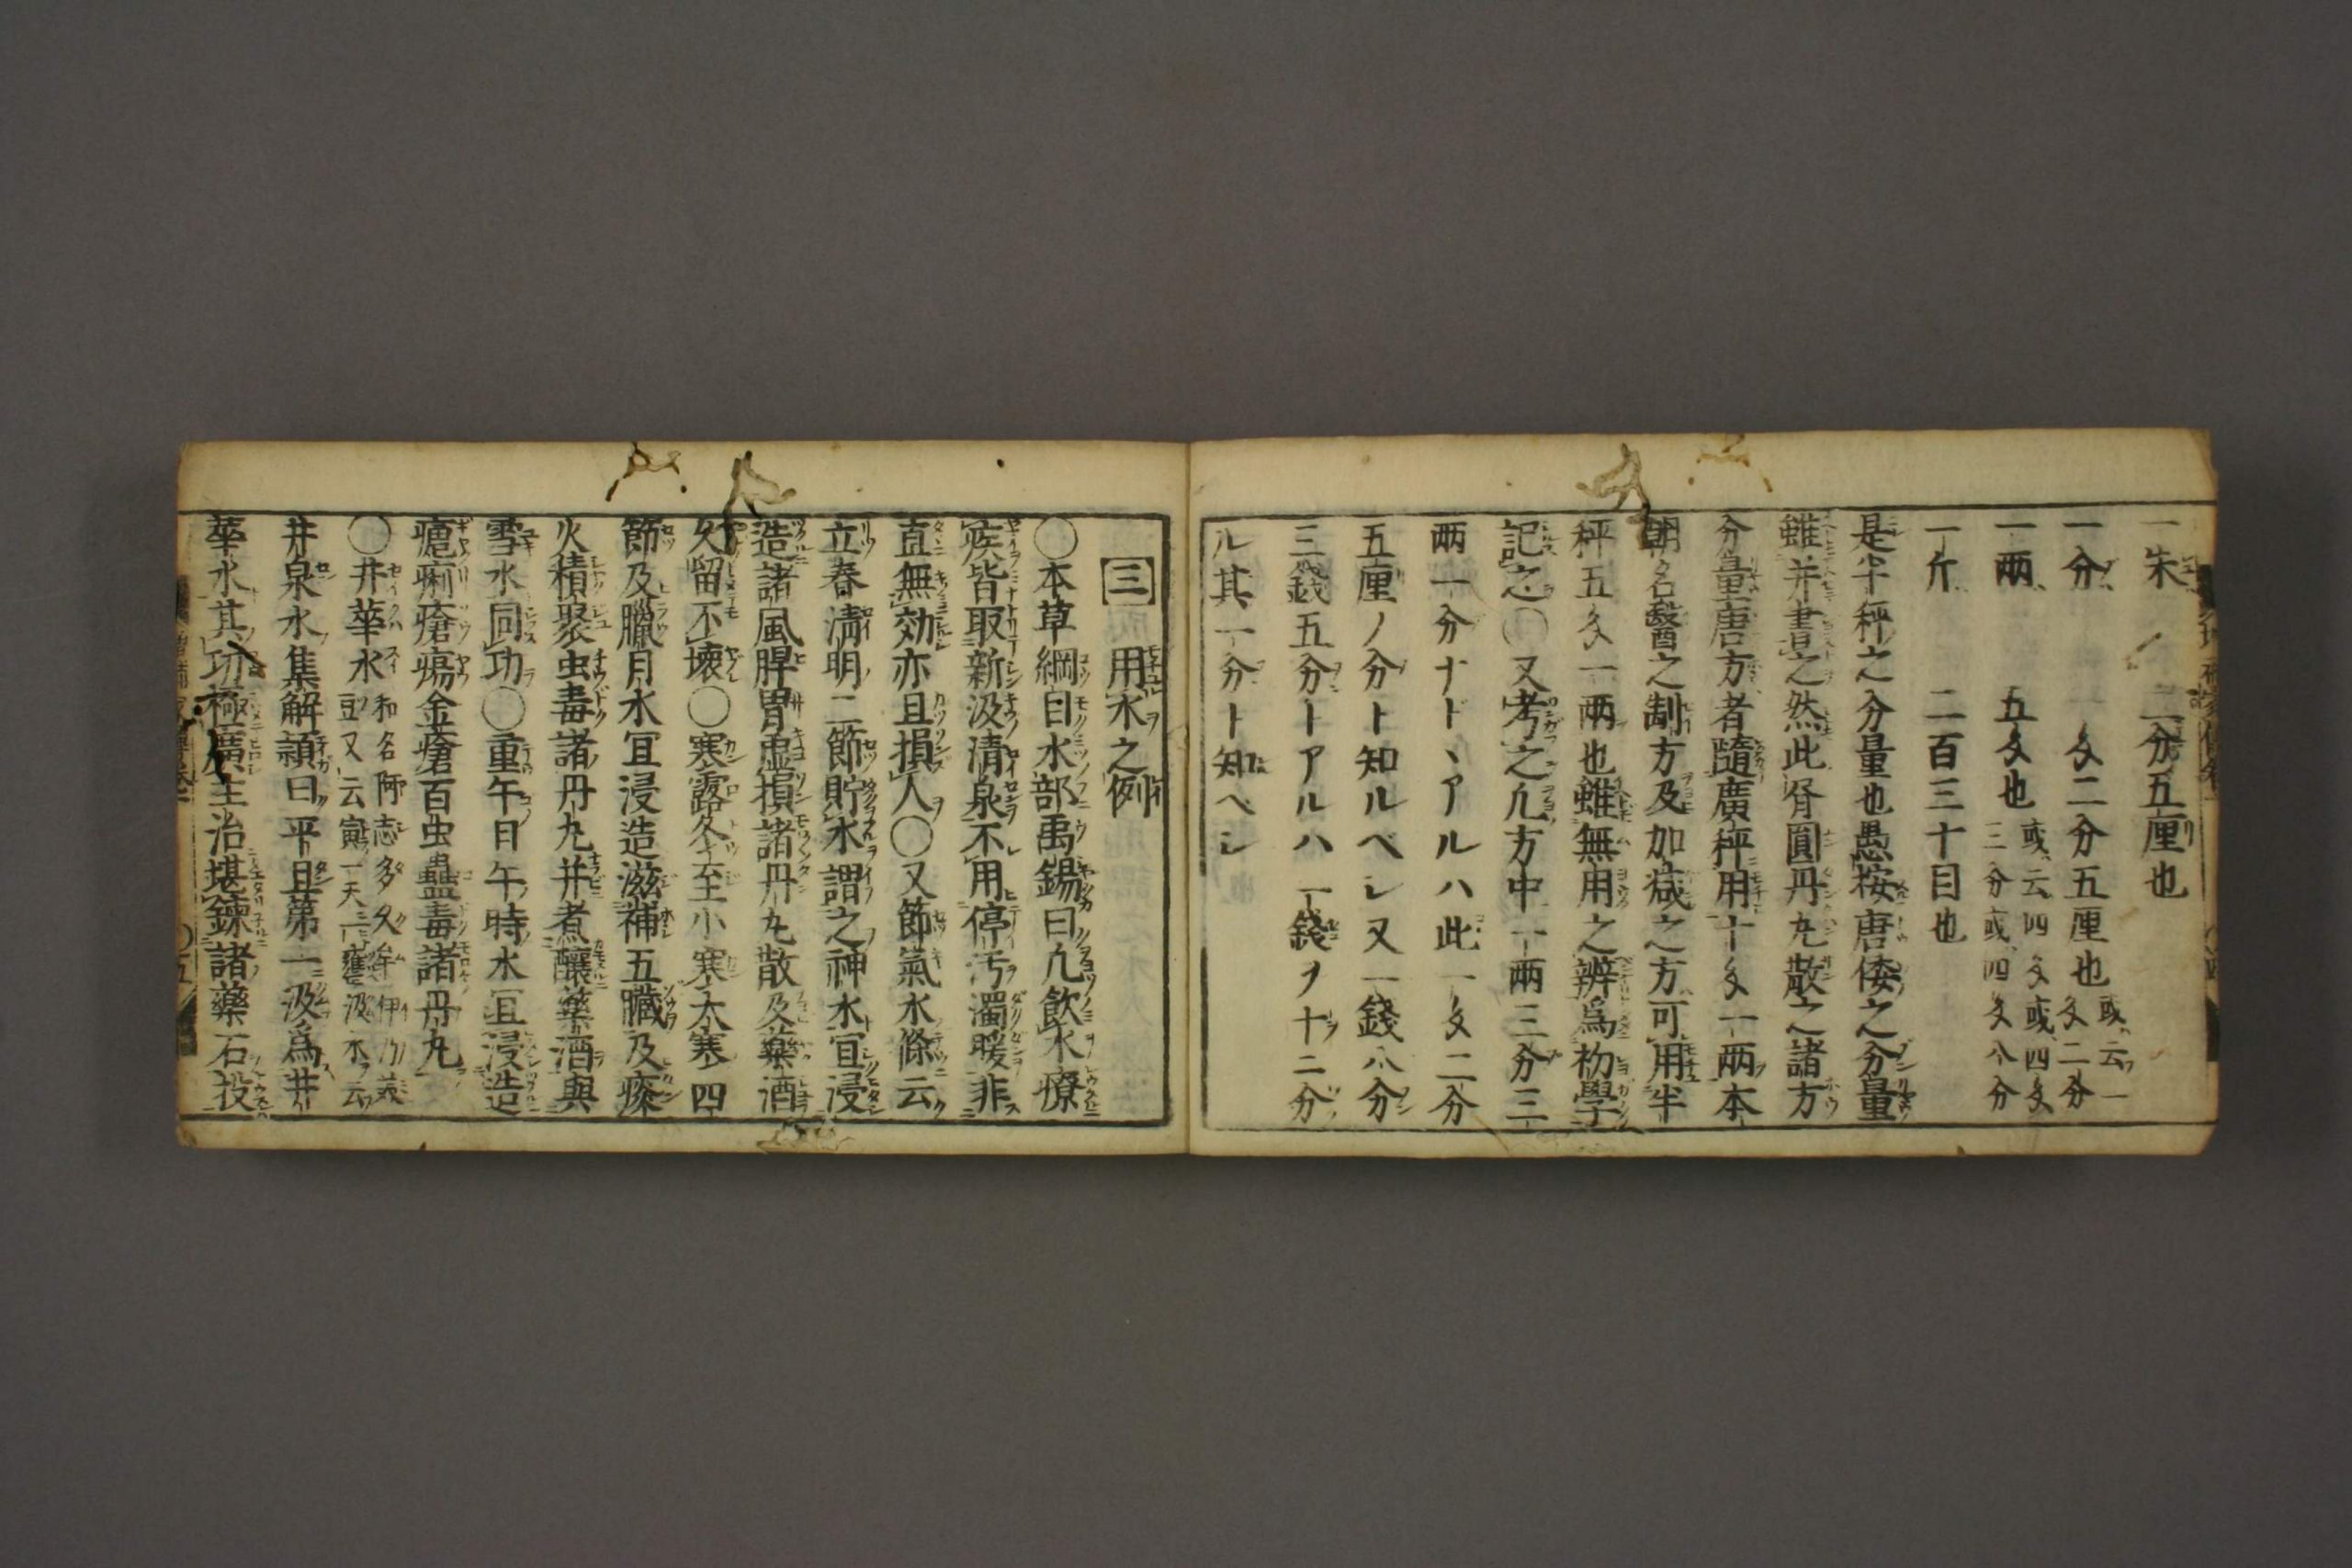 一朱 二分五厘也
一分 一匁二分五厘也 或云一匁二分
一兩 五匁也 或云四匁或四匁三分或四匁八分
一斤 二百三十目也
是半秤之分量也愚按唐倭之分量
雖并書之然此脊圓丹丸散之諸方
分量唐方者隨廣秤用十匁一兩本
朝名醫之制方及加減之方可用半
秤五匁一兩也雖無用之辨爲初學
記之〇又考之凢方中一兩三分三
兩一分ナドヽアルハ此一匁二分
五厘ノ分ト知ルベシ又一錢八分
三錢五分トアルハ一錢ヲ十ニ分
ル其一分ト知ヘシ
三 用水之例
〇本草綱目水部禹錫曰凢飲水療
疾皆取新汲清泉不用停汚濁暖非
直無効亦且損人〇又節氣水條云
立春清明二節貯水謂之神水宜浸
造諸風脾胃虛損諸丹丸散及藥酒
久留不壞〇寒露冬至小寒大寒四
節及臘月水宜浸造滋補五臟及痰
火積聚虫毒諸丹丸并煮釀藥酒與
雪水同功〇重午日午時水宜浸造
瘧痢瘡瘍金瘡百虫蠱毒諸丹丸
〇井華水 和名阿志多久牟伊乃美豆又云寅一天ニ甕汲水云
井泉水集解頴曰平旦第一汲爲井
華水其功極廣主治堪鍊諸藥石投
〇五